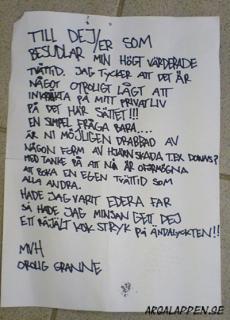 TILL DEJ/ER SOM
BESUDLAR MIN HÖGT VÄRDERADE
TVÄTTID. JAG TYCKER ATT DET ÄR
NÅGOT OTROLIGT LÅGT ATT
INKRÄKTA PÅ MITT PRIVATLIV
PÅ DET HÄR SÄTTET!!!
EN SIMPEL FRÅGA BARA....
ÄR NI MÖJLIGEN DRABBAD AV
NÅGON FORM AV HJÄRNSKADA T.EX DOWNS?
MED TANKE PÅ ATT NI ÄR OFÖRMÖGNA
ATT BOKA EN EGEN TVÄTTID SOM
ALLA ANDRA.
HADE JAG VARIT EDERA FAR
SÅ HADE JAG MINSAN GETT DEJ
ETT REJÄLT KOK STRYK PÅ ÄNDALYCKTEN!!
MVH
OROLIG GRANNE
ARGALAPPEN.SE